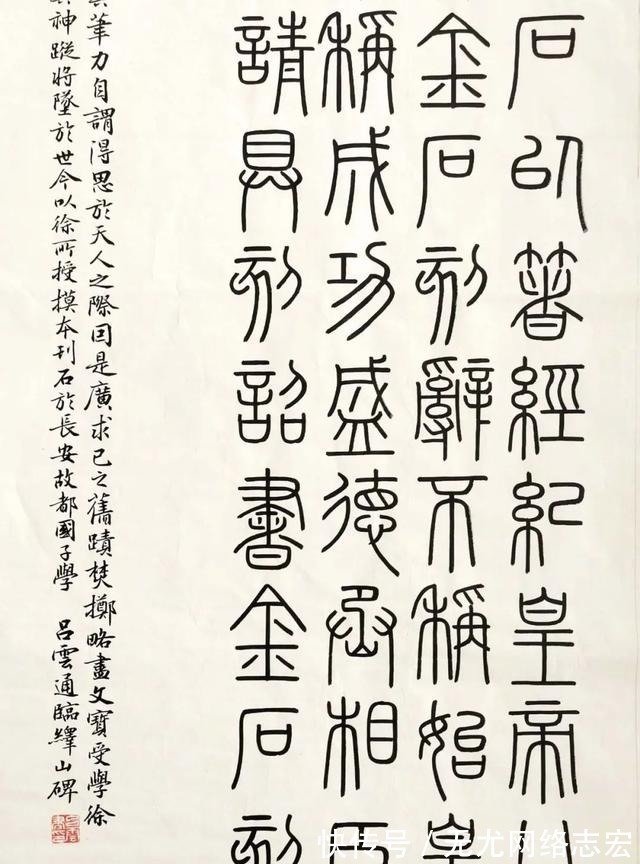 石以著經紀皇帝
金石刻辭不稱始皇
稱成功盛德丞相臣
請具刻詔書金石刻
筆力自謂得思於天人之際因是廣求己之舊蹟焚擲略盡文寶受學徐
神蹤將墜於世今以徐所授摸本刊石於長安故都國子學 呂雲通臨繹山碑
快传号/尤尤网络志宏